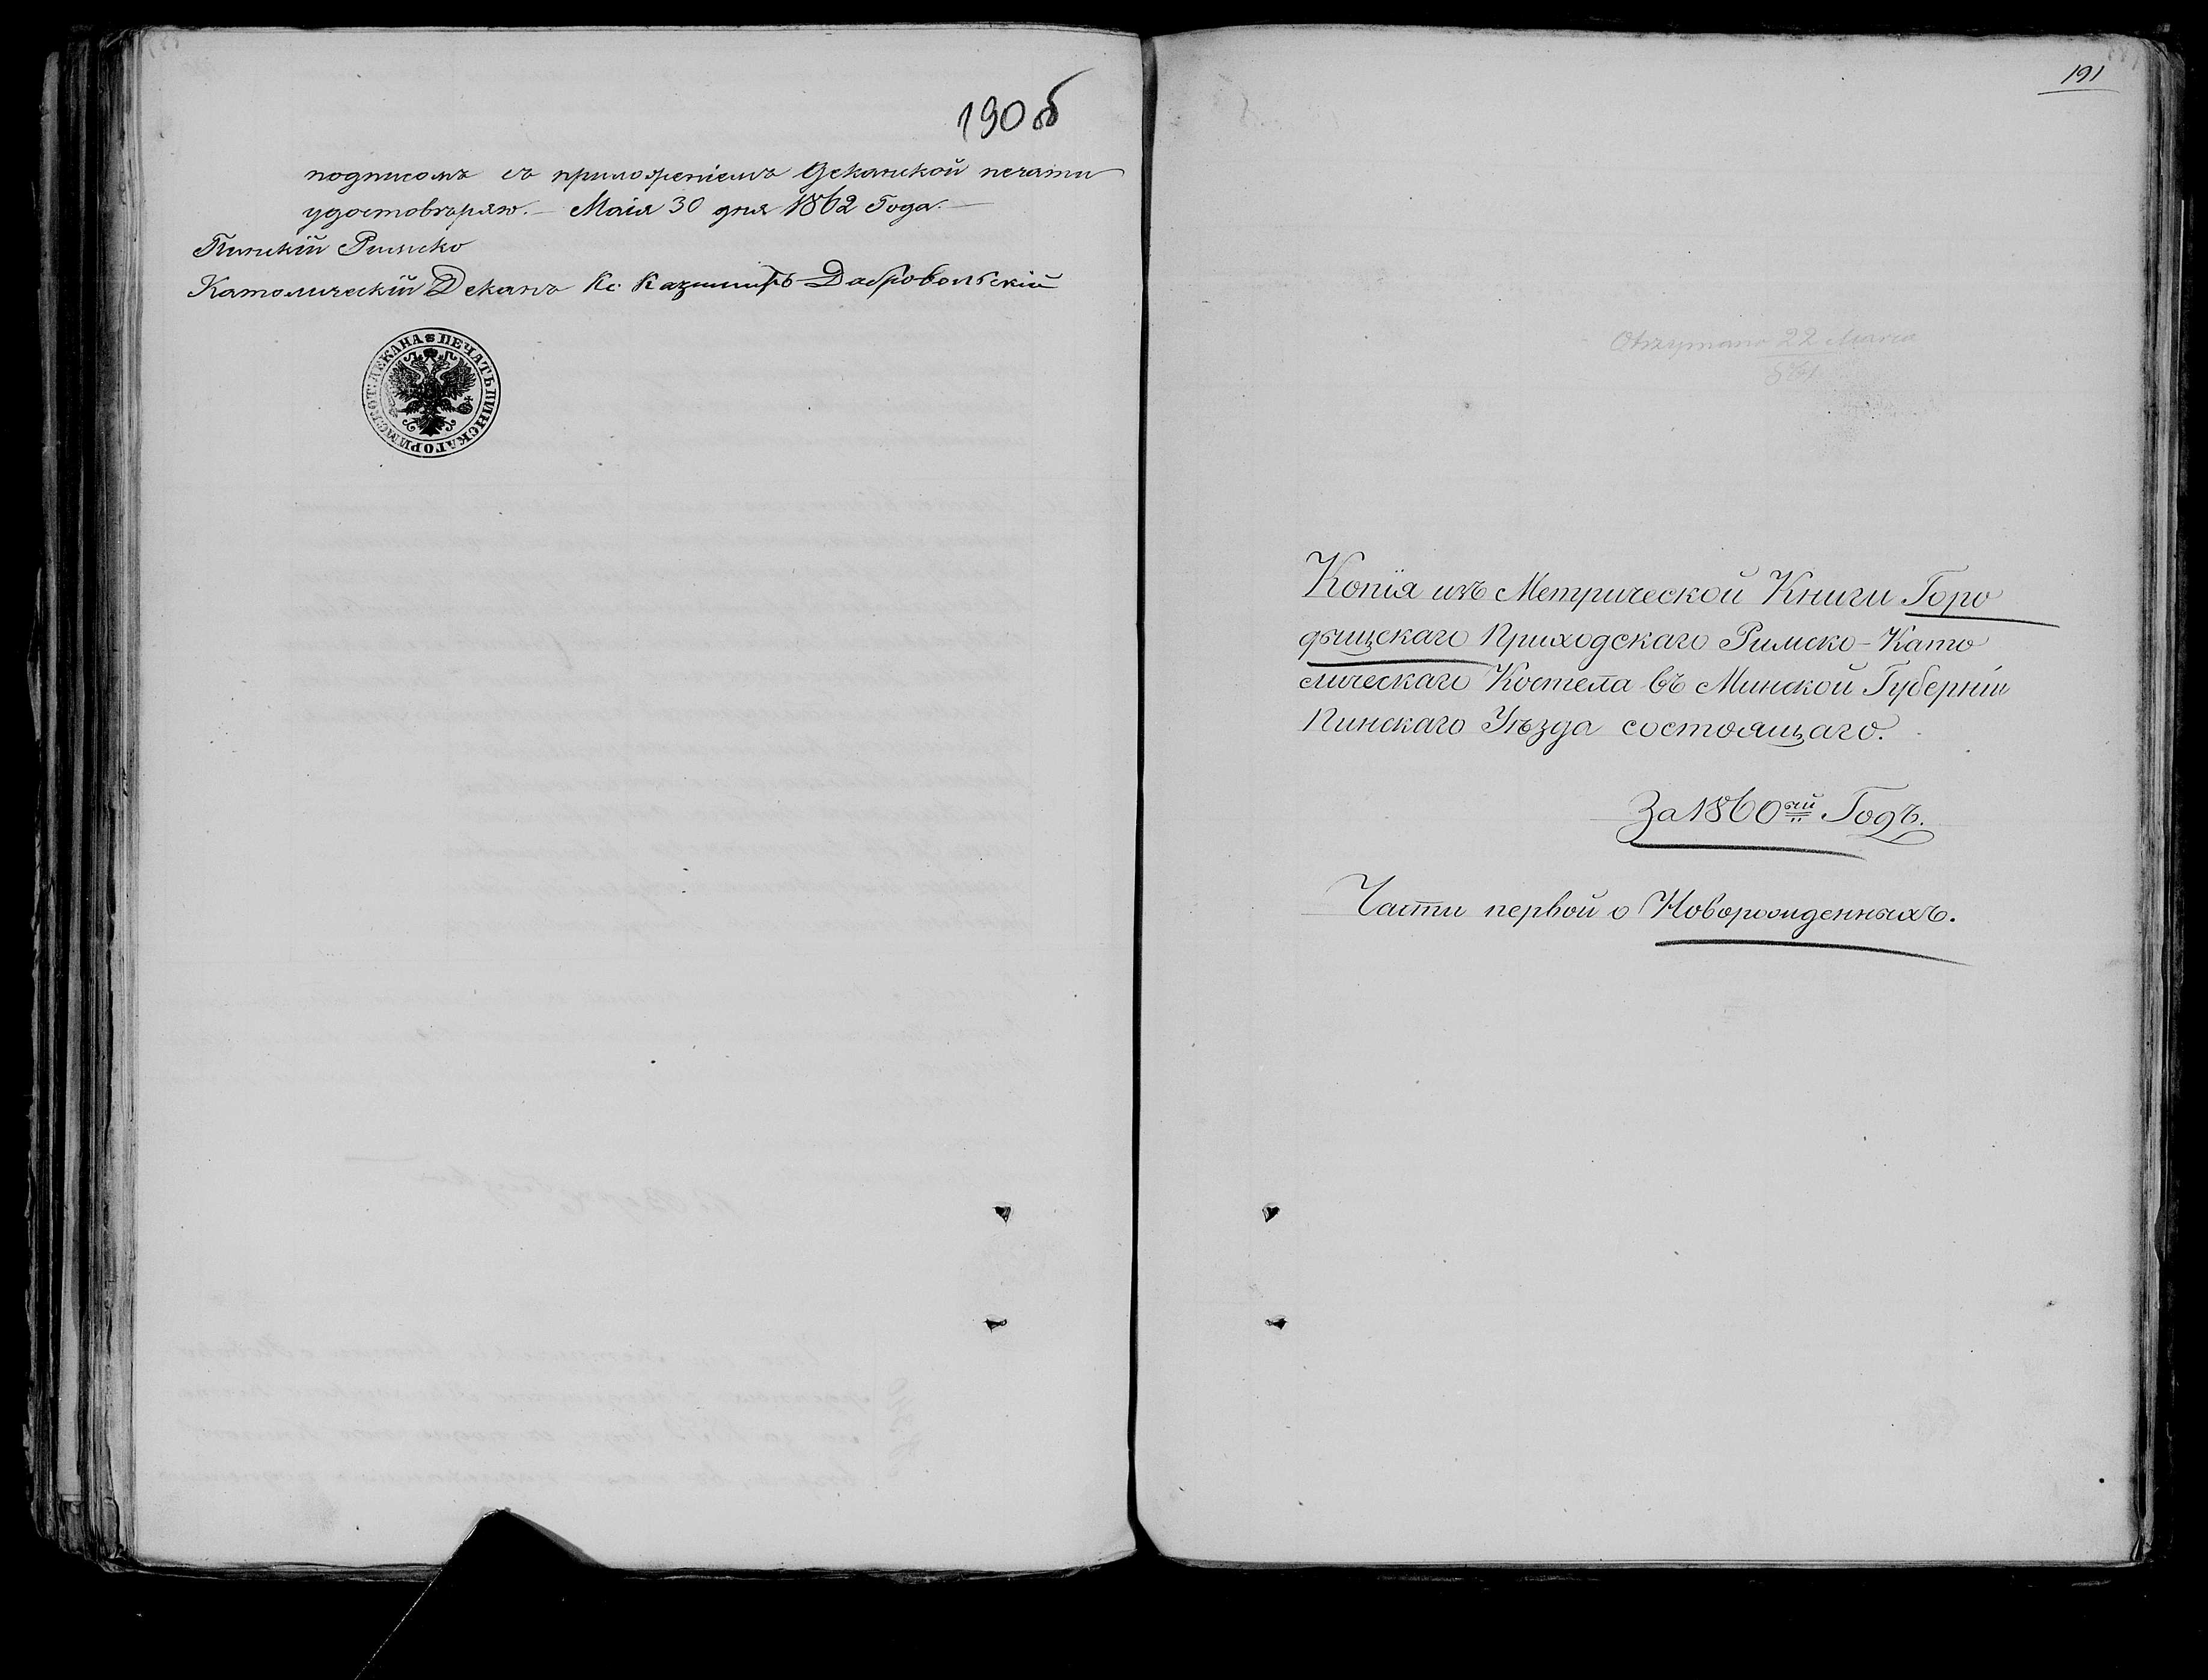 190 об
подписомъ съ приложеніемъ Деканской печати
удостовѣряю. — Маія 30 дня 1862 Года. —
Пинскій Римско
Католическій Деканъ Кс. Казимиръ Добровольскій
ПЕЧАТЬ ПИНСКАГО РИМСКО КОТ: ДЕКАНА
191
Otrzymano 22 Marca
1861
Копія изъ Метрической Книги Горо
дыщскаго Приходскаго Римско-Като
лическаго Костела въ Минской Губерніи
Пинскаго Уѣзда состоящаго.
За 1860ый Годъ.
Части первой о Новорожденныхъ.